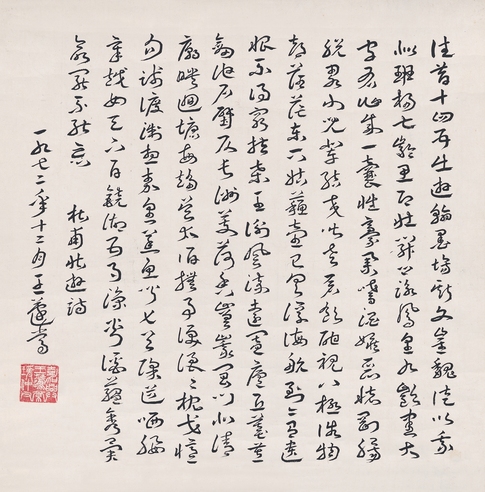 往昔十四五出遊翰墨場斯文崔魏徒以我
似班楊七齡思即壯開口詠鳳皇九齡書大
字有作成一囊性豪業嗜酒嫉惡懷剛腸
脫略小兒輩結交皆老蒼飲酣視八極俗物
都茫茫東下姑蘇臺已具浮海航到今有遺
恨不得窮扶桑王謝風流遠闔廬丘墓荒
劍池石壁仄長洲芰荷香嵯峨閶門北清
廟映迴塘每趨吳太伯撫事淚浪〻枕戈憶
勾踐渡浙想秦皇蒸魚聞匕首除道哂腰
章越女天下白鏡湖五月涼剡溪蘊秀異
欲罷不能忘 杜甫壯遊詩
一九七二年十二月王蘧常